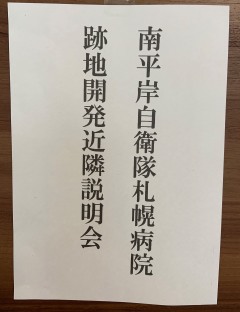 南平岸自衛隊札幌病院
跡地開発近隣説明会